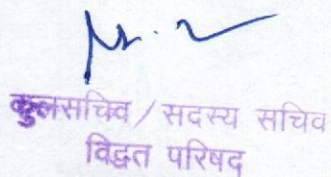 कुलसचिव / सदस्य सचिव
विद्वत परिषद